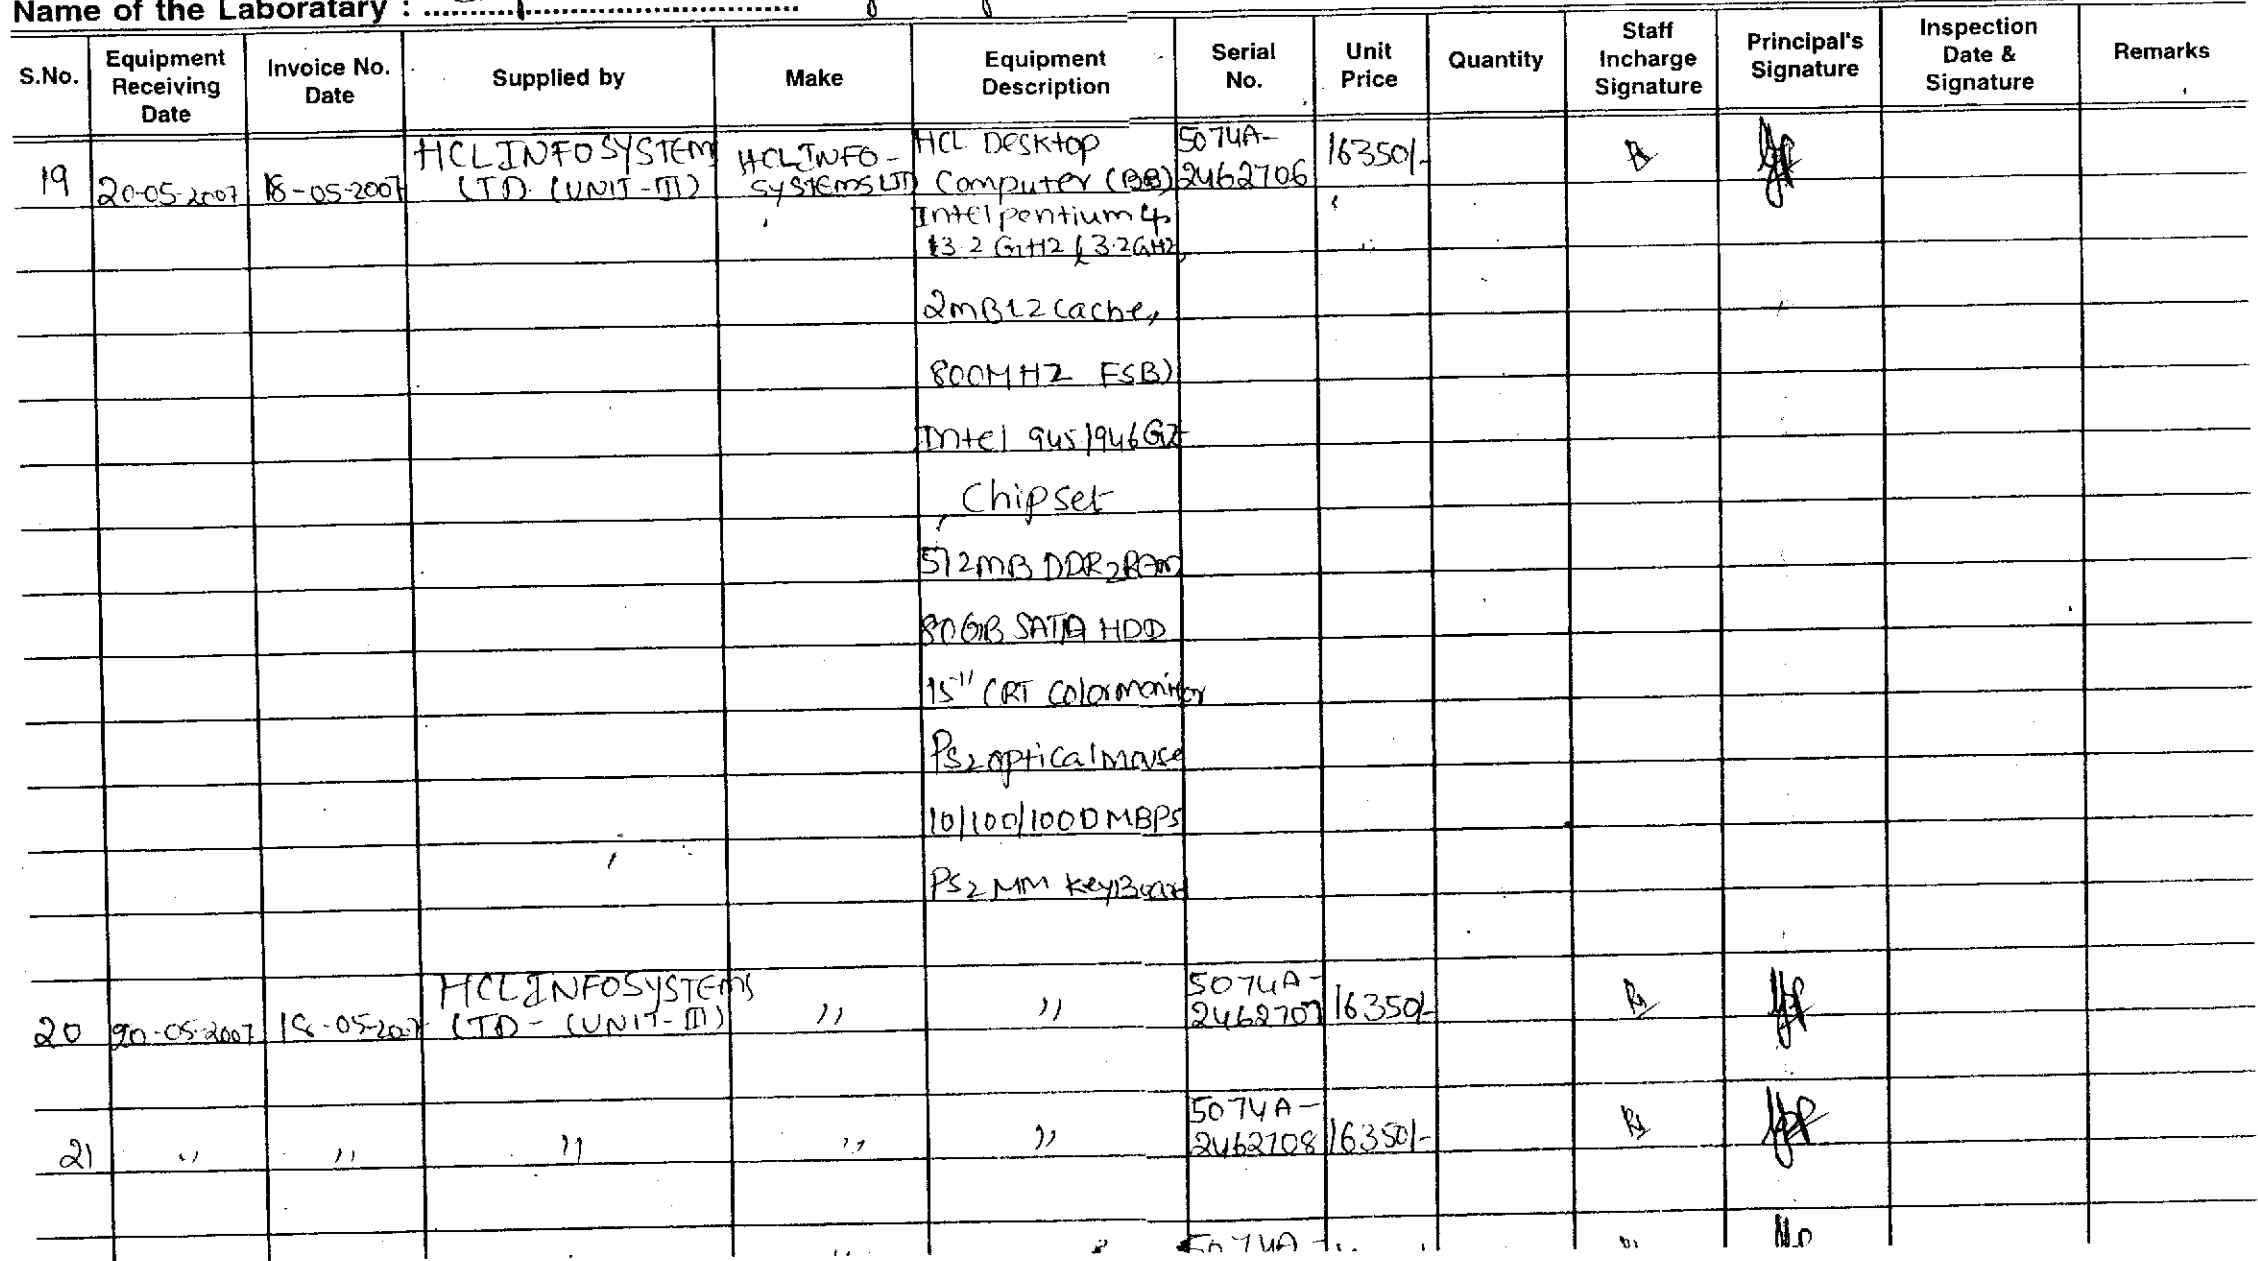 Name of the Laboratary :
S.No.
Equipment
Receiving
Date
Invoice No.
Date
Supplied by
Make
Equipment
Description
Serial
No.
Unit
Price
Quantity
Staff
Incharge
Signature
Principal's
Signature
Inspection
Date &
Signature
Remarks
19
20-05-2007
18-05-2007
HCL INFOSYSTEM
LTD (UNIT-III)
HCL INFO-
SYSTEMS LTD
HCL Desktop
Computer (BB)
Intel pentium 4
3.2 GHZ 3.2GHZ,
2MB L2 Cache,
800MHZ FSB)
Intel 945/946GZ
Chipset
512MB DDR2 RAM
80GB SATA HDD
15" CRT Color monitor
PS2 optical mouse
10/100/1000 MBPS
PS2 MM KeyBoard
5074A-
2462706
16350/-
20
20-05-2007
18-05-2007
HCL INFOSYSTEMS
LTD- (UNIT-III)
"
"
5074A-
2462707
16350/-
21
"
"
"
"
"
5074A-
2462708
16350/-
5074A-